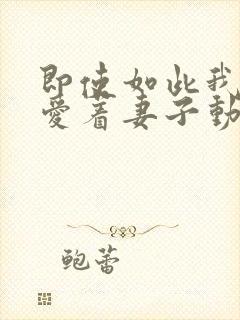 即使如此我
爱着妻子動
鲍蕾